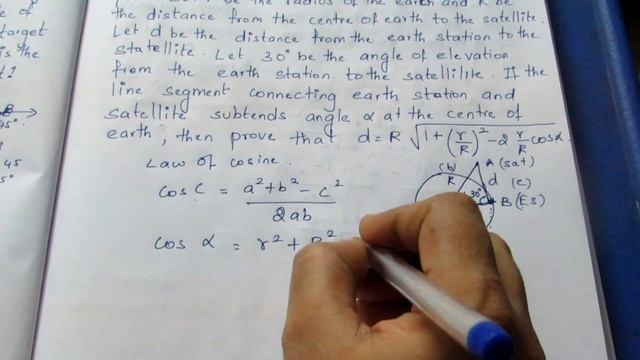 be the radius of the earth and R be
the distance from the centre of earth to the satellite.
Let d be the distance from the earth station to the
statellite. Let 30° be the angle of elevation
from the earth station to the satellite. If the
line segment connecting earth station and
satellite subtends angle α at the centre of
earth, then prove that d = R √1+(r/R)²-2 r/R cosα.
Law of cosine.
cos C = a²+b²-c² / 2ab
cos α = r² + R²
(b)
A (sat)
R
d
(c)
30°
B (ES)
e of
target
is the
t?
B
45°
45
5°